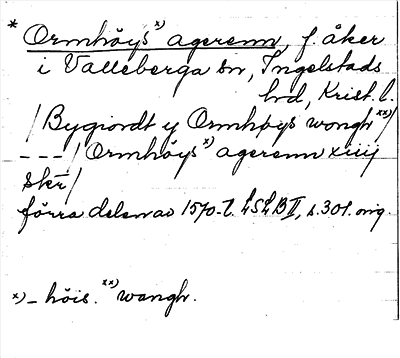 * Ormhöys x) agerenn, f. åker
i Valleberga sn, Ingelstads
hd, Krist. l.
/Bygiordt y Ormhøys wongh xx)/
---/Ormhöys x) agerenn xiiij
skr/
förra delen av 1570-t. LSLB II, s. 301. orig.
x) - höis. xx) wangh.